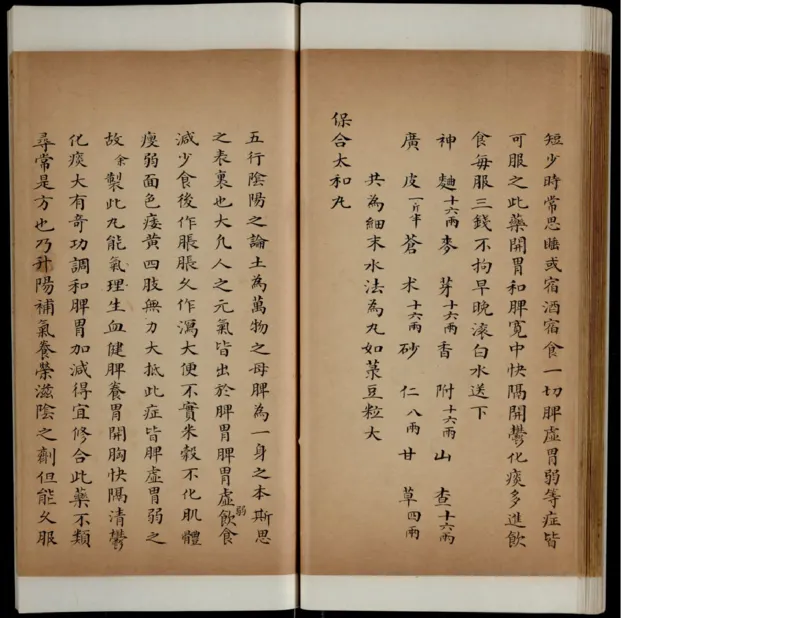 短少時常思睡或宿酒宿食一切脾虛胃弱等症皆
可服之此藥開胃和脾寬中快膈開鬱化痰多進飲
食每服三錢不拘早晚滾白水送下
神麯十六兩麥芽十六兩香附十六兩山查十六兩
廣皮一斤半蒼术十六兩砂仁八兩甘草四兩
共為細末水法為丸如菉豆粒大
保合太和丸
五行陰陽之論土為萬物之母脾為一身之本斯思
之表裏也大凢人之元氣皆出於脾胃脾胃虛弱飲食
減少食後作脹脹久作瀉大便不實米穀不化肌體
瘦弱面色痿黃四肢無力大抵此症皆脾虛胃弱之
故余製此丸能氣理生血健脾養胃開胸快膈清鬱
化痰大有奇功調和脾胃加減得宜修合此藥不類
尋常是方也乃升陽補氣養榮滋陰之劑但能久服